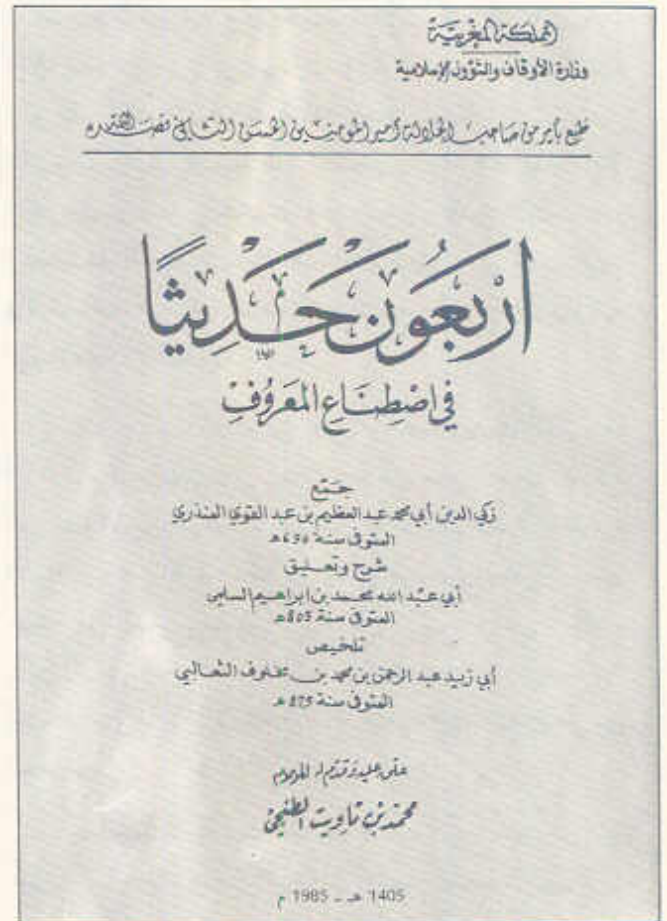 المملكة المغربية
وزارة الأوقاف والشؤون الإسلامية
طبع بأمر من صاحب الجلالة أمير المؤمنين الحسن الثاني نصره الله
أربعون حديثًا
في اصْطِنَاعِ المَعرُوُفِ
جمع
زكي الدين أبي محمد عبد العظيم بن عبد القوي المنذري
المتوفى سنة 656 هـ
شرح وتعليق
أبي عبد الله محمد بن ابراهيم السلمي
المتوفى سنة 803 هـ
تلخيص
أبي زيد عبد الرحمن بن محمد بن مخلوف الثعالبي
المتوفى سنة 875 هـ
علق عليه وقدم له المرحوم
محمد بن تاويت الطنجي
1405 هـ - 1985 م